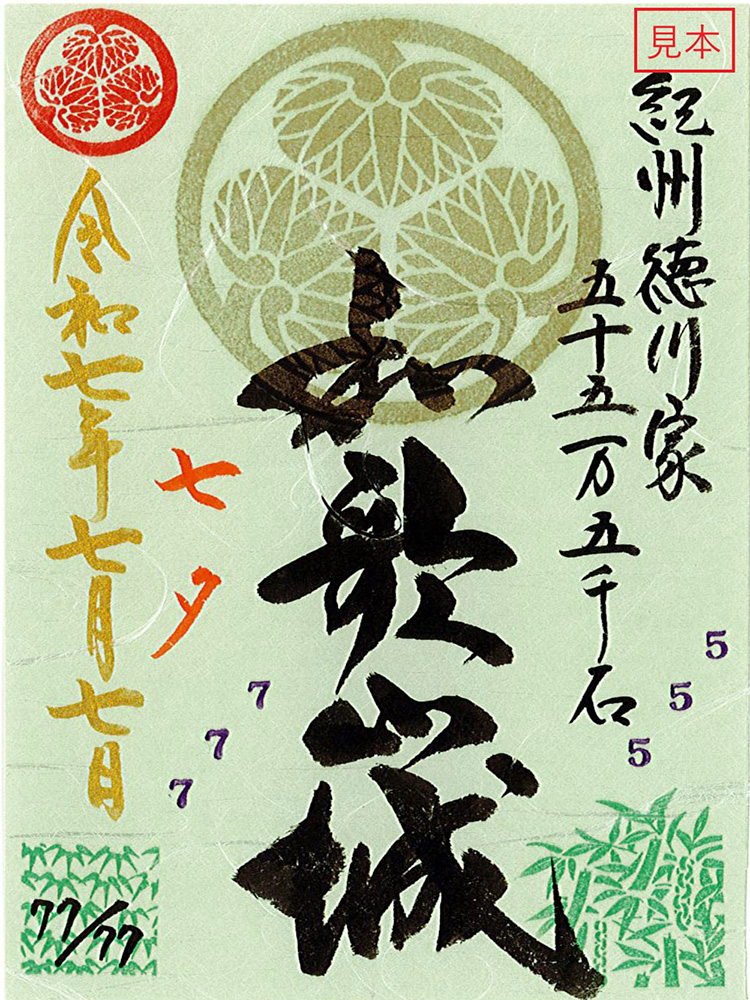 見本
紀州徳川家
五十五万五千石
555
和歌山城
777
七夕
令和七年七月七日
77/77